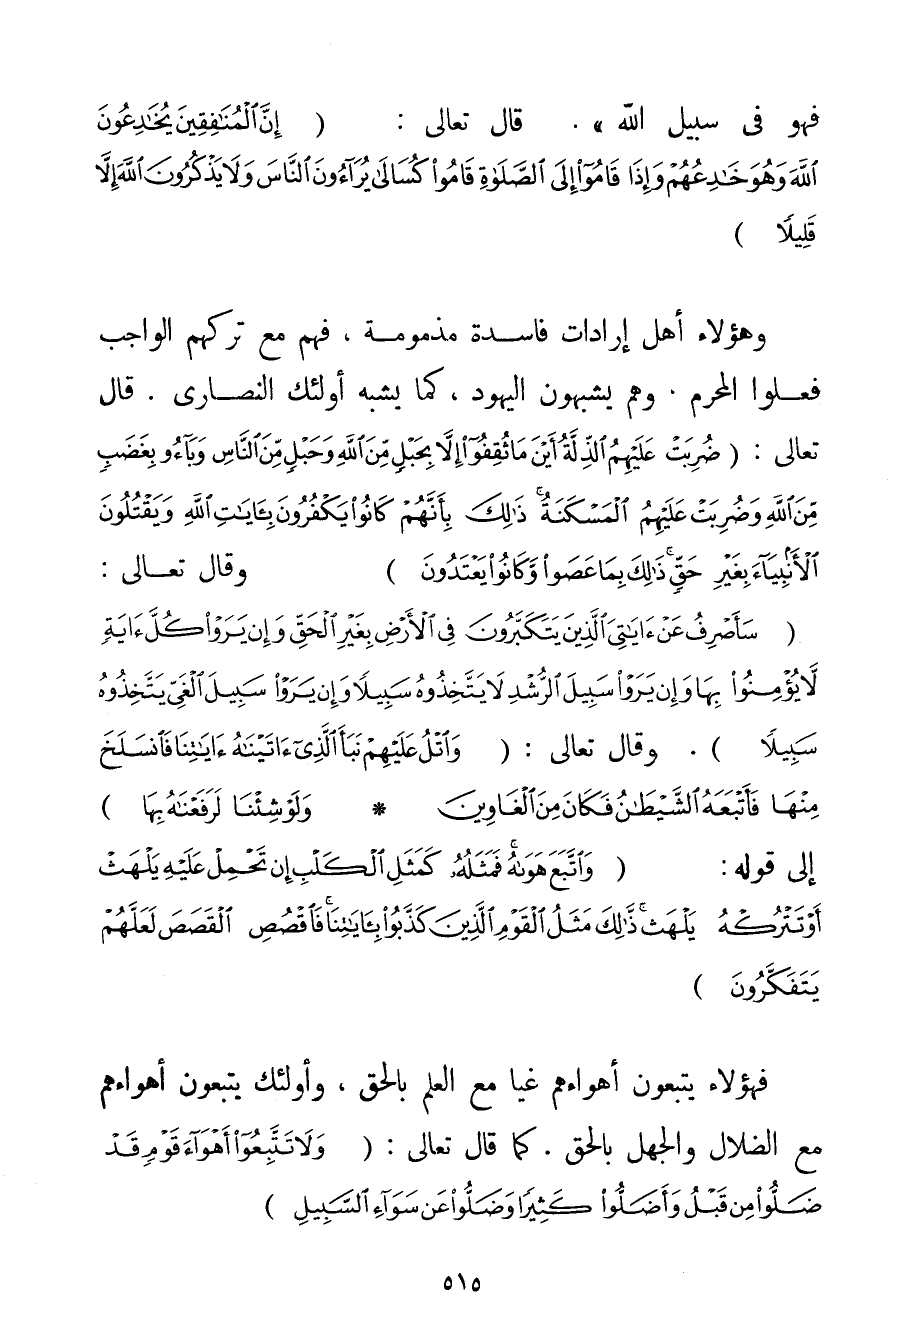 فهو فى سبيل الله » . قال تعالى : ( إِنَّ ٱلْمُنَٰفِقِينَ يُخَٰدِعُونَ
ٱللَّهَ وَهُوَ خَٰدِعُهُمْ وَإِذَا قَامُوٓا۟ إِلَى ٱلصَّلَوٰةِ قَامُوا۟ كُسَالَىٰ يُرَآءُونَ ٱلنَّاسَ وَلَا يَذْكُرُونَ ٱللَّهَ إِلَّا
قَلِيلًا )
وهؤلاء أهل إرادات فاسدة مذمومة ، فهم مع تركهم الواجب
فعلوا المحرم . وهم يشبهون اليهود ، كما يشبه أولئك النصارى . قال
تعالى : ( ضُرِبَتْ عَلَيْهِمُ ٱلذِّلَّةُ أَيْنَ مَا ثُقِفُوٓا۟ إِلَّا بِحَبْلٍ مِّنَ ٱللَّهِ وَحَبْلٍ مِّنَ ٱلنَّاسِ وَبَآءُو بِغَضَبٍ
مِّنَ ٱللَّهِ وَضُرِبَتْ عَلَيْهِمُ ٱلْمَسْكَنَةُ ۚ ذَٰلِكَ بِأَنَّهُمْ كَانُوا۟ يَكْفُرُونَ بِـَٔايَٰتِ ٱللَّهِ وَيَقْتُلُونَ
ٱلْأَنۢبِيَآءَ بِغَيْرِ حَقٍّ ۚ ذَٰلِكَ بِمَا عَصَوا۟ وَّكَانُوا۟ يَعْتَدُونَ ) وقال تعالى :
( سَأَصْرِفُ عَنْ ءَايَٰتِىَ ٱلَّذِينَ يَتَكَبَّرُونَ فِى ٱلْأَرْضِ بِغَيْرِ ٱلْحَقِّ وَإِن يَرَوْا۟ كُلَّ ءَايَةٍ
لَّا يُؤْمِنُوا۟ بِهَا وَإِن يَرَوْا۟ سَبِيلَ ٱلرُّشْدِ لَا يَتَّخِذُوهُ سَبِيلًا وَإِن يَرَوْا۟ سَبِيلَ ٱلْغَىِّ يَتَّخِذُوهُ
سَبِيلًا ) . وقال تعالى : ( وَٱتْلُ عَلَيْهِمْ نَبَأَ ٱلَّذِىٓ ءَاتَيْنَٰهُ ءَايَٰتِنَا فَٱنسَلَخَ
مِنْهَا فَأَتْبَعَهُ ٱلشَّيْطَٰنُ فَكَانَ مِنَ ٱلْغَاوِينَ * وَلَوْ شِئْنَا لَرَفَعْنَٰهُ بِهَا )
إلى قوله : ( وَٱتَّبَعَ هَوَىٰهُ ۚ فَمَثَلُهُۥ كَمَثَلِ ٱلْكَلْبِ إِن تَحْمِلْ عَلَيْهِ يَلْهَثْ
أَوْ تَتْرُكْهُ يَلْهَث ۚ ذَّٰلِكَ مَثَلُ ٱلْقَوْمِ ٱلَّذِينَ كَذَّبُوا۟ بِـَٔايَٰتِنَا ۚ فَٱقْصُصِ ٱلْقَصَصَ لَعَلَّهُمْ
يَتَفَكَّرُونَ )
فهؤلاء يتبعون أهواءهم غيا مع العلم بالحق ، وأولئك يتبعون أهواءهم
مع الضلال والجهل بالحق . كما قال تعالى : ( وَلَا تَتَّبِعُوٓا۟ أَهْوَآءَ قَوْمٍ قَدْ
ضَلُّوا۟ مِن قَبْلُ وَأَضَلُّوا۟ كَثِيرًا وَضَلُّوا۟ عَن سَوَآءِ ٱلسَّبِيلِ )
٥١٥